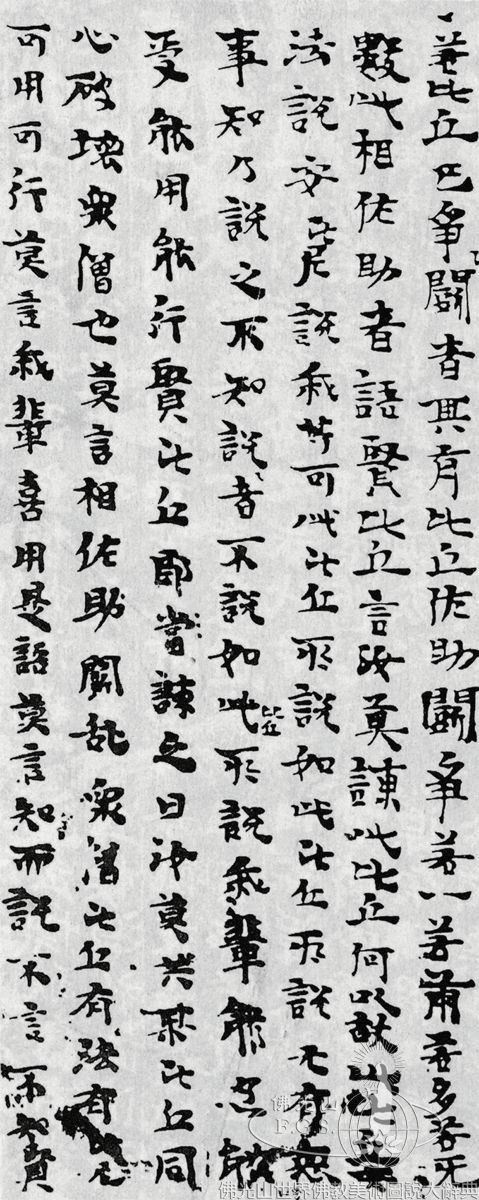 若比丘已爭鬪者其有比丘佐助鬪爭若一若兩若多若不
數此相佐助者語賢比丘言汝莫諫此比丘何以故此比丘
法說安尼說我等可此比丘所說如此比丘所說不有無
事知乃說之不知說者不說如此比丘所說我輩能忍能
受能用能行賢比丘即當諫之曰汝莫共某比丘同
心破壞衆僧也莫言相佐助鬪乱衆僧比丘有法有尼
可用可行莫言我輩喜用是語莫言知而說不言不知賢
佛光山
F.G.S.
佛光山世界佛教美術圖說大辭典